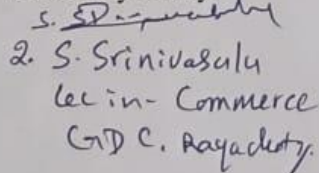 2. S. Srinivasulu
Lec in- Commerce
GDC. Rayachoty.